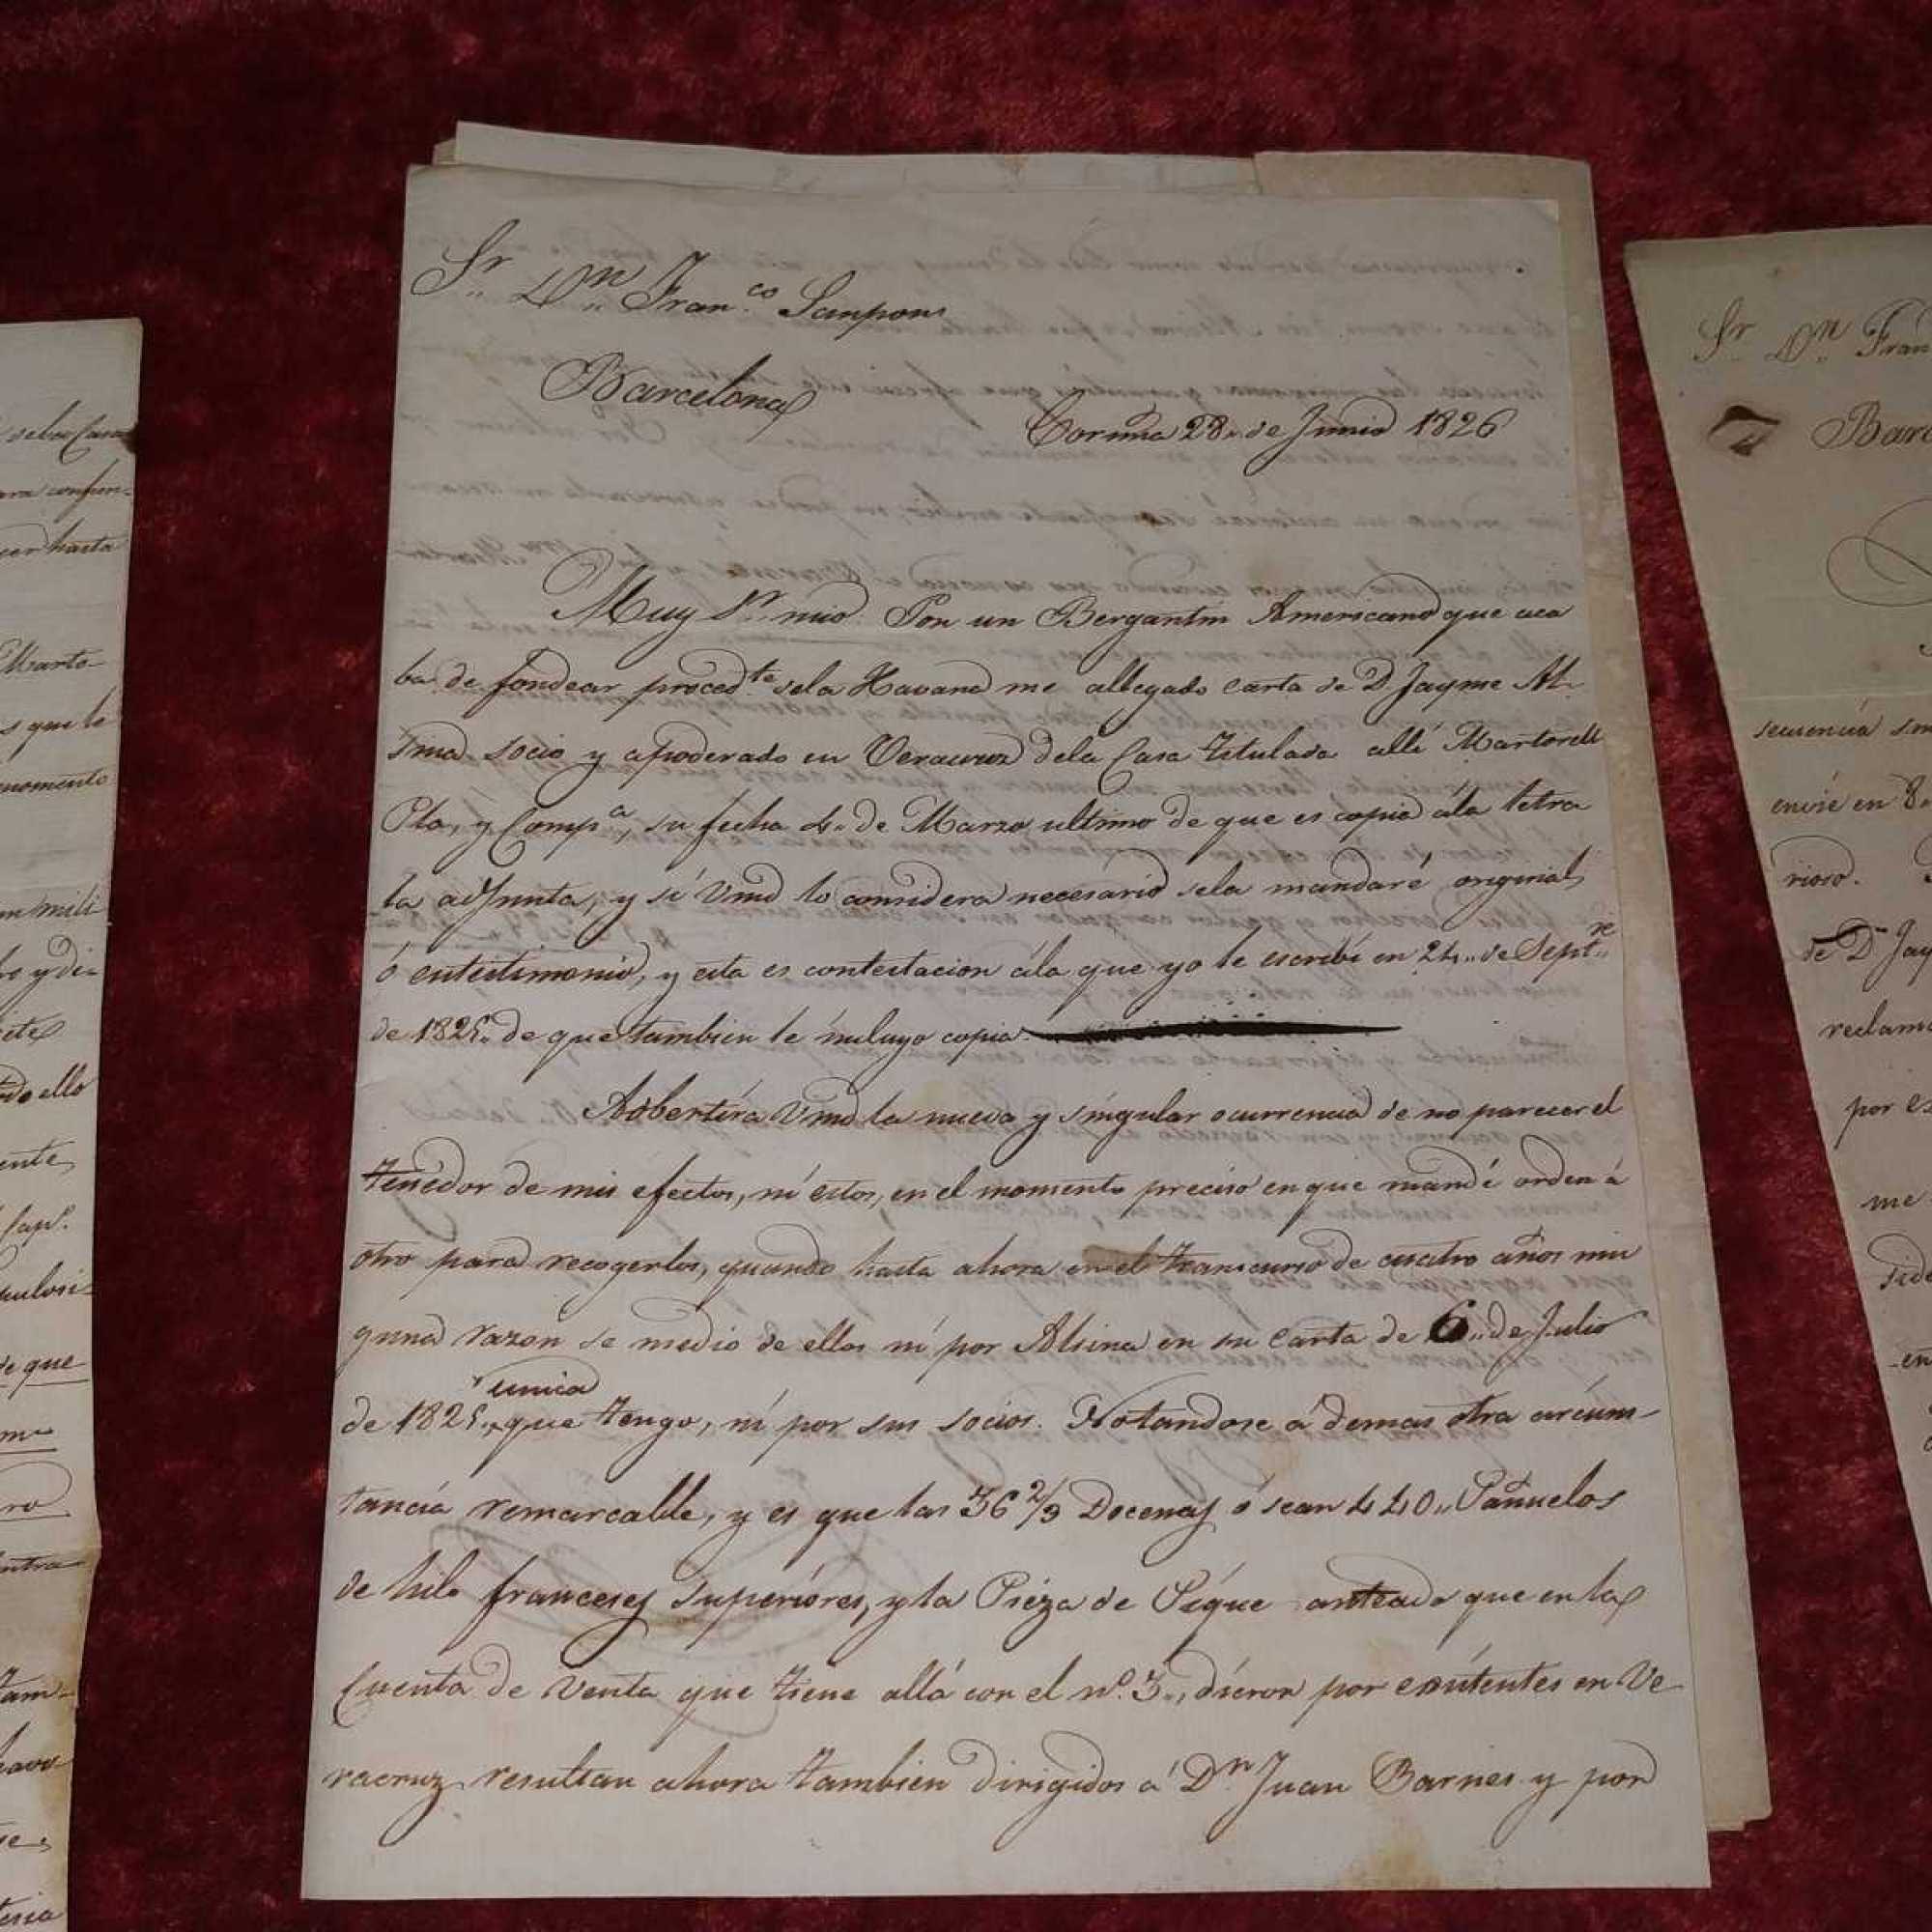 Sr. Dn. Franco. Sanpons
Barcelona
Coruña 28. de Junio 1826
Muy Sr. mio. Por un Bergantin Americano que aca
ba de fondear procedte. dela Havana me allegado carta de D. Jayme Al-
sina socio y apoderado en Veracruz dela Casa titulada allí Martorell
Pla, y Compa., su fecha 4. de Marzo ultimo de que es copia ála letra
la adjunta, y sí Vmd lo considera necesário sela mandaré original,
ó entestimonio, y esta es contestacion ála que yo le escribí en 24. de Septre.
de 1825. de que tambien le incluyo copia.
Adbertíra Vmd la nueva y síngular ocurrencia de no parecer el
tenedor de mis efectos, ní estos, en el momento preciso en que mandé orden á
otro para recogerlos, quando hasta ahora en el transcurso de cuatro años nin
guna razon se medio de ellos ni por Alsina en su carta de 6. de Julio
de 1825. unica que tengo, ní por sus socios. Notandose á demas otra circuns-
tancía remarcable, y es que las 36 2/3 Docenas ó sean 440. Pañuelos
de hilo franceses superíóres, y la Pieza de Píque anteado que en la
Cuenta de Venta que tiene allá con el no. 3., dieron por exístentes en Ve-
racruz resultan ahora tambien dirigidos á Dn. Juan Barnes y por
Sr. Dn. Fran
Barc
envie en 8.
de Dn. Jay
reclam
por es
me
hasta
Marto-
s que le
momento
mili
o y di-
do ello
ente,
Capn.
de que
ro